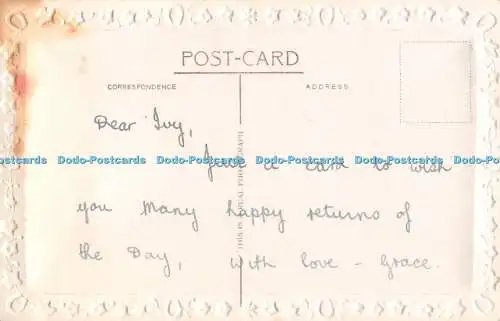 POST-CARD
CORRESPONDENCE
ADDRESS
Dear Ivy,
Just a card to wish
Dodo-Postcards Dodo-Postcards Dodo-Postcards Dodo-Postcards Dodo-Postcards
you many happy returns of
the Day, with love - Grace.
THIS IS A REAL PHOTOGRAPH